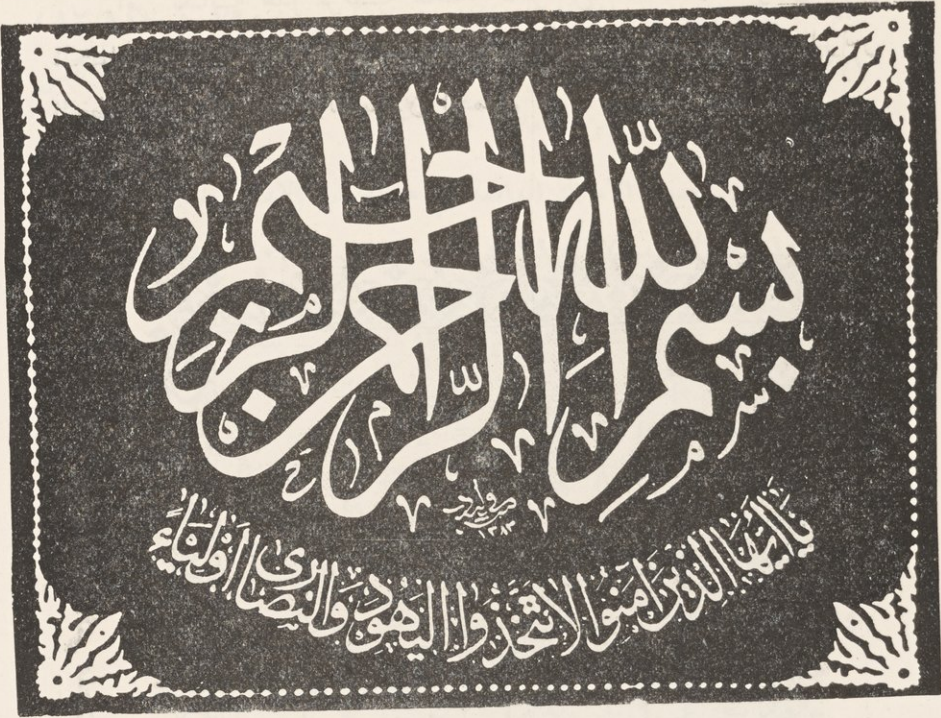 بسم الله الرحمن الرحيم
١٣٨٣
يَا أَيُّهَا الَّذِينَ آمَنُوا لَا تَتَّخِذُوا الْيَهُودَ وَالنَّصَارَى أَوْلِيَاءَ